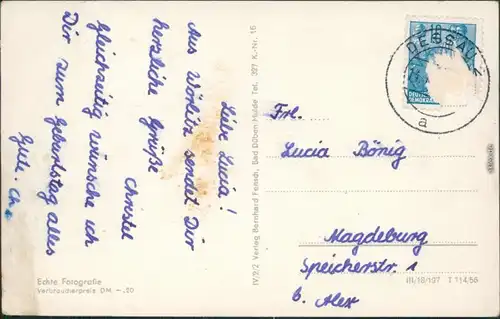 Liebe Lucia!
Aus Wörlitz sendet Dir
herzliche Grüße
Christel
Gleichzeitig wünsche ich
Dir zum Geburtstag alles
Gute. Ch
Echte Fotografie
Verbraucherpreis DM -.20
IV/2/2 Verlag Bernhard Fensch, Bad Düben/Mulde Tel. 327 K.-Nr. 15
DESSAU 2
a
DEUTSCHE
DEMOKRA
Frl.
Lucia Bönig
Magdeburg
Speicherstr. 1
b. Alex
III/18/197 T 114/56